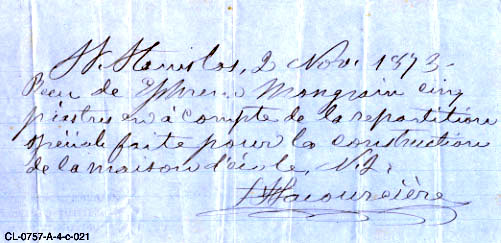 St. Stanislas, 2 Nov. 1873.
Reçu de Ephrem Mongrain cinq
piastres en à compte de la repartition
spéciale faite pour la construction
de la maison d'école, N. 2.
Lacourcière
CL-0757-A-4-c-021